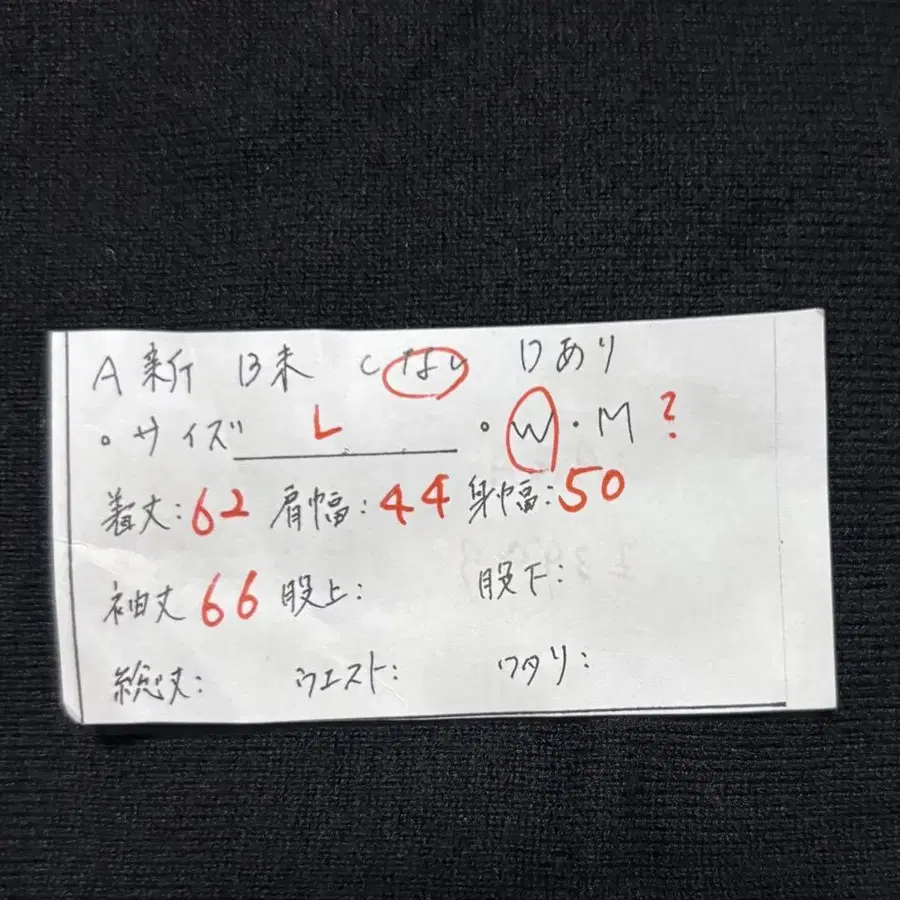 A 新 B未 Cなし Dあり
・サイズ L ・W・M ?
着丈:62 肩幅:44 身幅:50
袖丈 66 股上: 股下:
総丈: ウエスト: ワタリ: